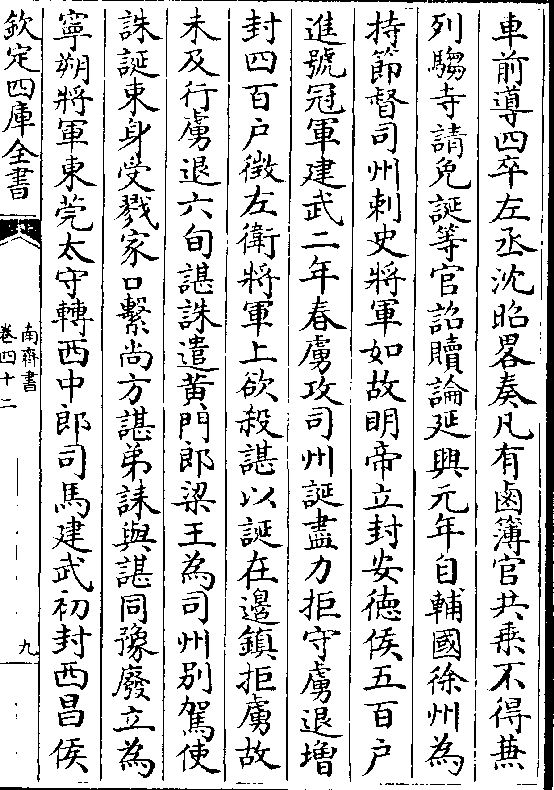 車前導四卒左丞沈昭畧奏凡有鹵簿官共乗不得兼
列騶寺請免誕等官詔贖論延興元年自輔國徐州為
持節督司州刺史將軍如故明帝立封安德侯五百戸
進號冠軍建武二年春虜攻司州誕盡力拒守虜退増
封四百户徴左衛將軍上欲殺諶以誕在邊鎮拒虜故
未及行虜退六旬諶誅遣黄門郎梁王為司州别駕使
誅誕束身受戮家口繫尚方諶弟誄與諶同豫廢立為
寧朔將軍東莞太守轉西中郎司馬建武初封西昌侯
欽定四庫全書
南齊書
卷四十二
九